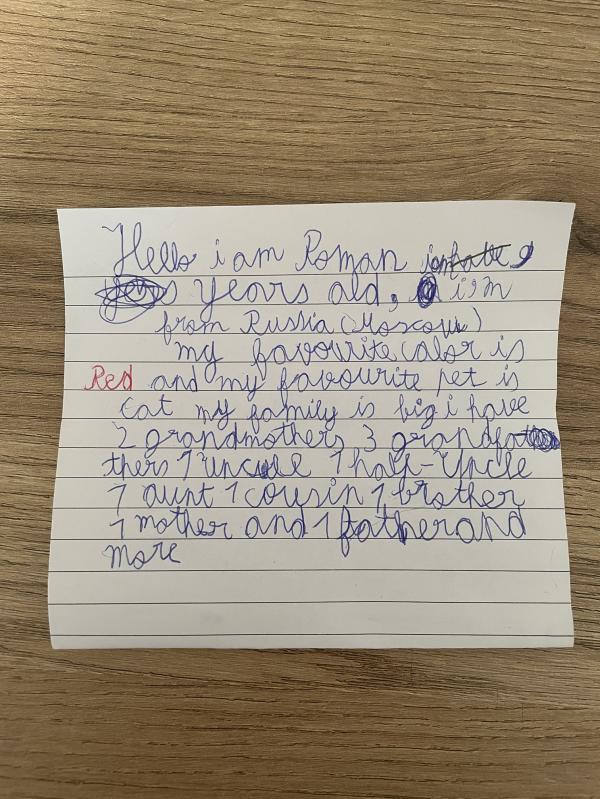 Hello i am Roman
years old, i'm
from Russia (Moscow)
my favourite calor is
Red and my favourite pet is
cat my family is big i have
2 grandmothers 3 grandfat
thers 1 uncle 1 half-Uncle
1 aunt 1 cousin 1 brother
1 mother and 1 father and
more